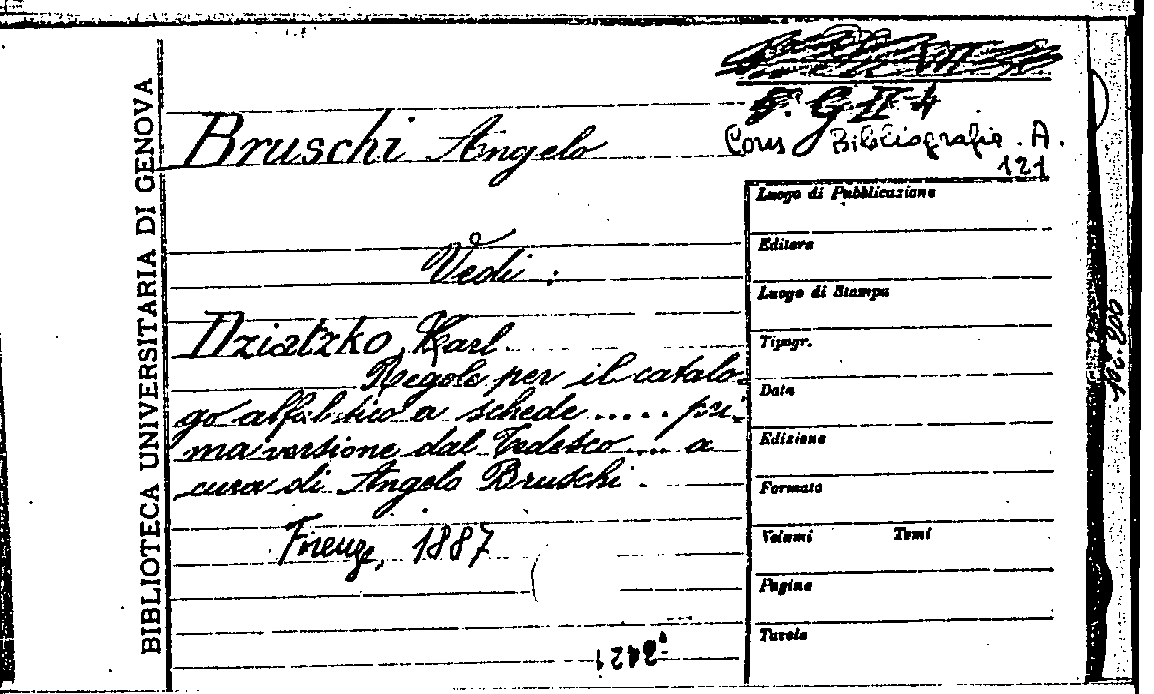 BIBLIOTECA UNIVERSITARIA DI GENOVA
G II 4
Cons Bibliografia . A.
121
Bruschi Angelo
Vedi :
Dziatzko, Karl.
Regole per il catalo-
go alfabetico a schede ..... pri-
ma versione dal Tedesco .... a
cura di Angelo Bruschi .
Firenze, 1887
Luogo di Pubblicazione
Editore
Luogo di Stampa
Tipogr.
Data
Edizione
Formato
Volumi Tomi
Pagine
Tavole